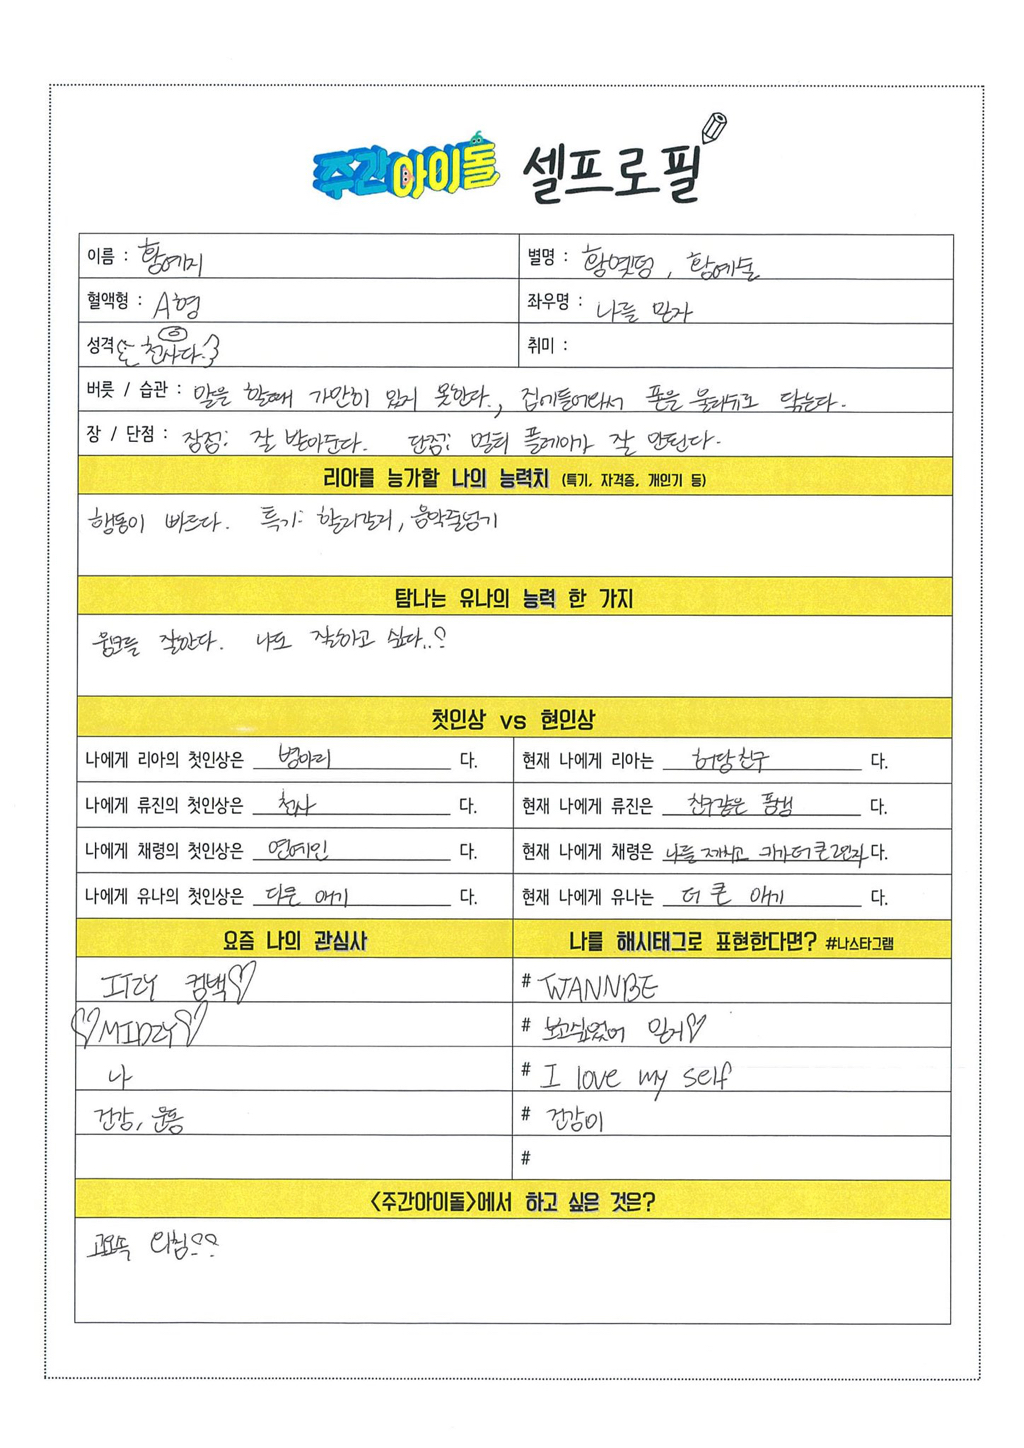 주간아이돌 셀프로필
이름 : 황예지
별명 : 황옛텅, 황예술
혈액형 : A형
좌우명 : 나를 믿자
성격 : 천사다.
취미 :
버릇 / 습관 : 말을 할때 가만히 있지 못한다., 집에들어와서 폰을 물티슈로 닦는다.
장 / 단점 : 장점: 잘 받아준다. 단점: 멀티 플레이가 잘 안된다.
리아를 능가할 나의 능력치 (특기, 자격증, 개인기 등)
행동이 빠르다. 특기: 할리갈리, 음악줄넘기
탐나는 유나의 능력 한 가지
윙크를 잘한다. 나도 잘하고 싶다..?
첫인상 vs 현인상
나에게 리아의 첫인상은 병아리 다.
현재 나에게 리아는 허당친구 다.
나에게 류진의 첫인상은 천사 다.
현재 나에게 류진은 친구같은 동생 다.
나에게 채령의 첫인상은 연예인 다.
현재 나에게 채령은 나를 제치고 키가 더 큰 2인자 다.
나에게 유나의 첫인상은 다큰 애기 다.
현재 나에게 유나는 더 큰 애기 다.
요즘 나의 관심사
나를 해시태그로 표현한다면? #나스타그램
ITZY 컴백♡
# WANNBE
♡MIDZY♡
# 보고싶었어 믿지♡
나
# I love my self
건강, 운동
# 건강이
#
<주간아이돌>에서 하고 싶은 것은?
고요속 외침??